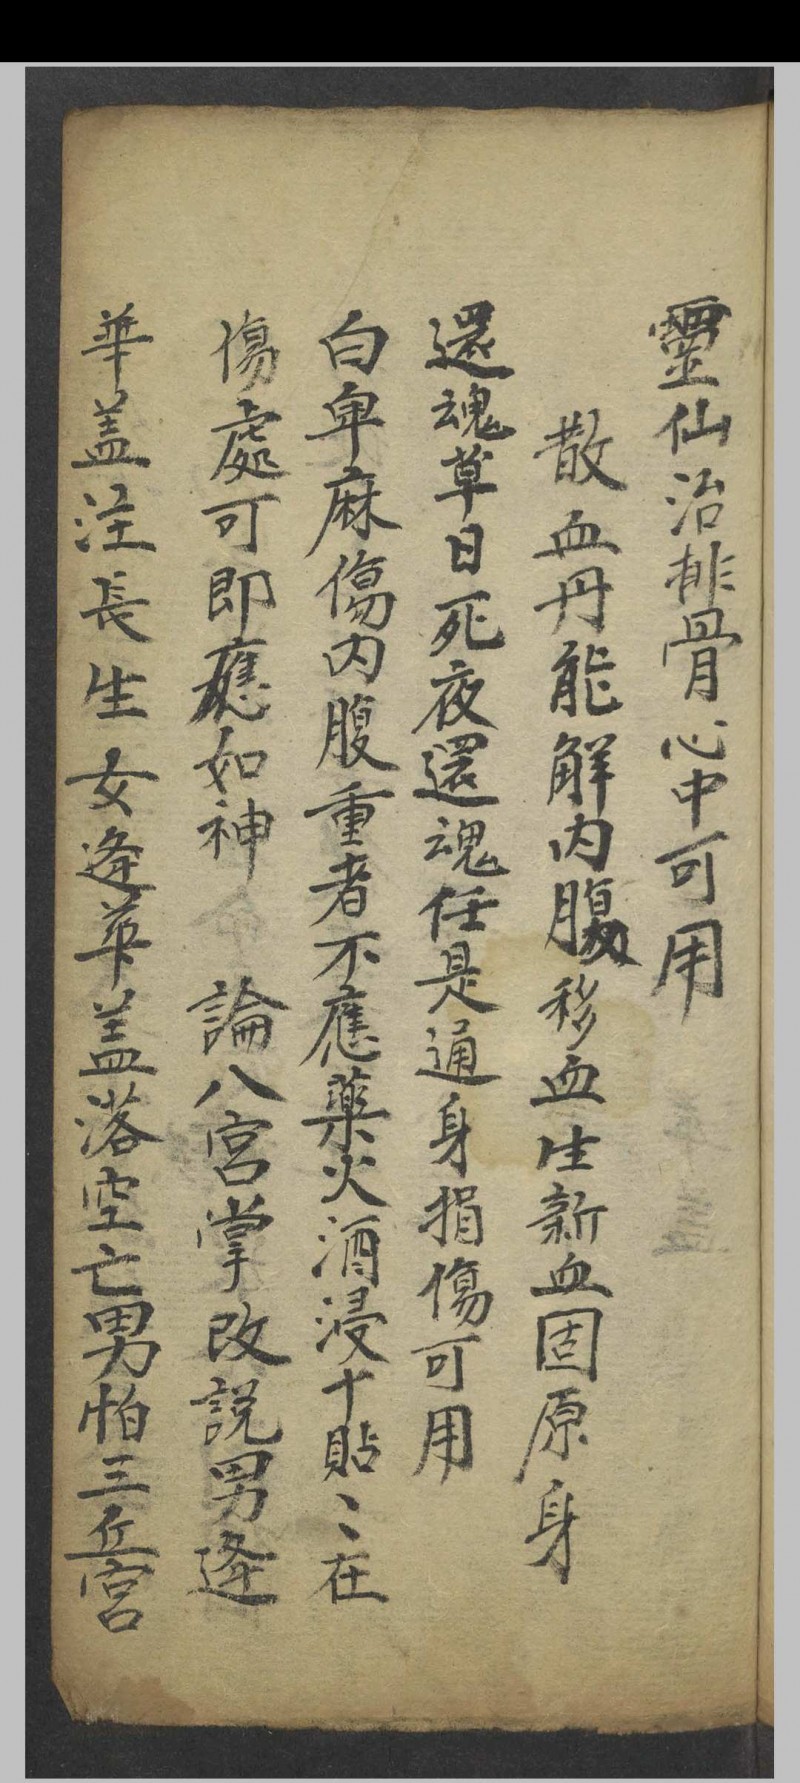 靈仙治排骨心中可用
散血丹能解内腹移血生新血固原身
還魂草日死夜還魂任是通身捐傷可用
白卑麻傷内腹重者不應藥火酒浸十貼〻在
傷處可即應如神 論八宮掌改說男逢
華盖注長生女逢華盖落空亡男怕三丘宮